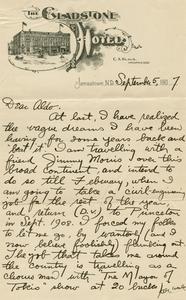 THE GLADSTONE
HOTEL
Jamestown, N.D. September 5, 1907
Dear Aldo.
At last, I have realized
the vague dreams I have been
having for some years back and
"beat it". I am travelling with a
friend Jimmy Morris, over this
broad Continent, and intend to
do so till February, when I
am going to take a civil-engin.
job for the rest of the year,
and return (D.V.) to Princeton
in Sept. 1908. I forced my folks
to let me go, by wantonly (and I now
believe foolishly) flunking out.
The job that takes me around
the Country is travelling as a
chorus man with "The Mayor of
Tokio" show at 20 bucks per week